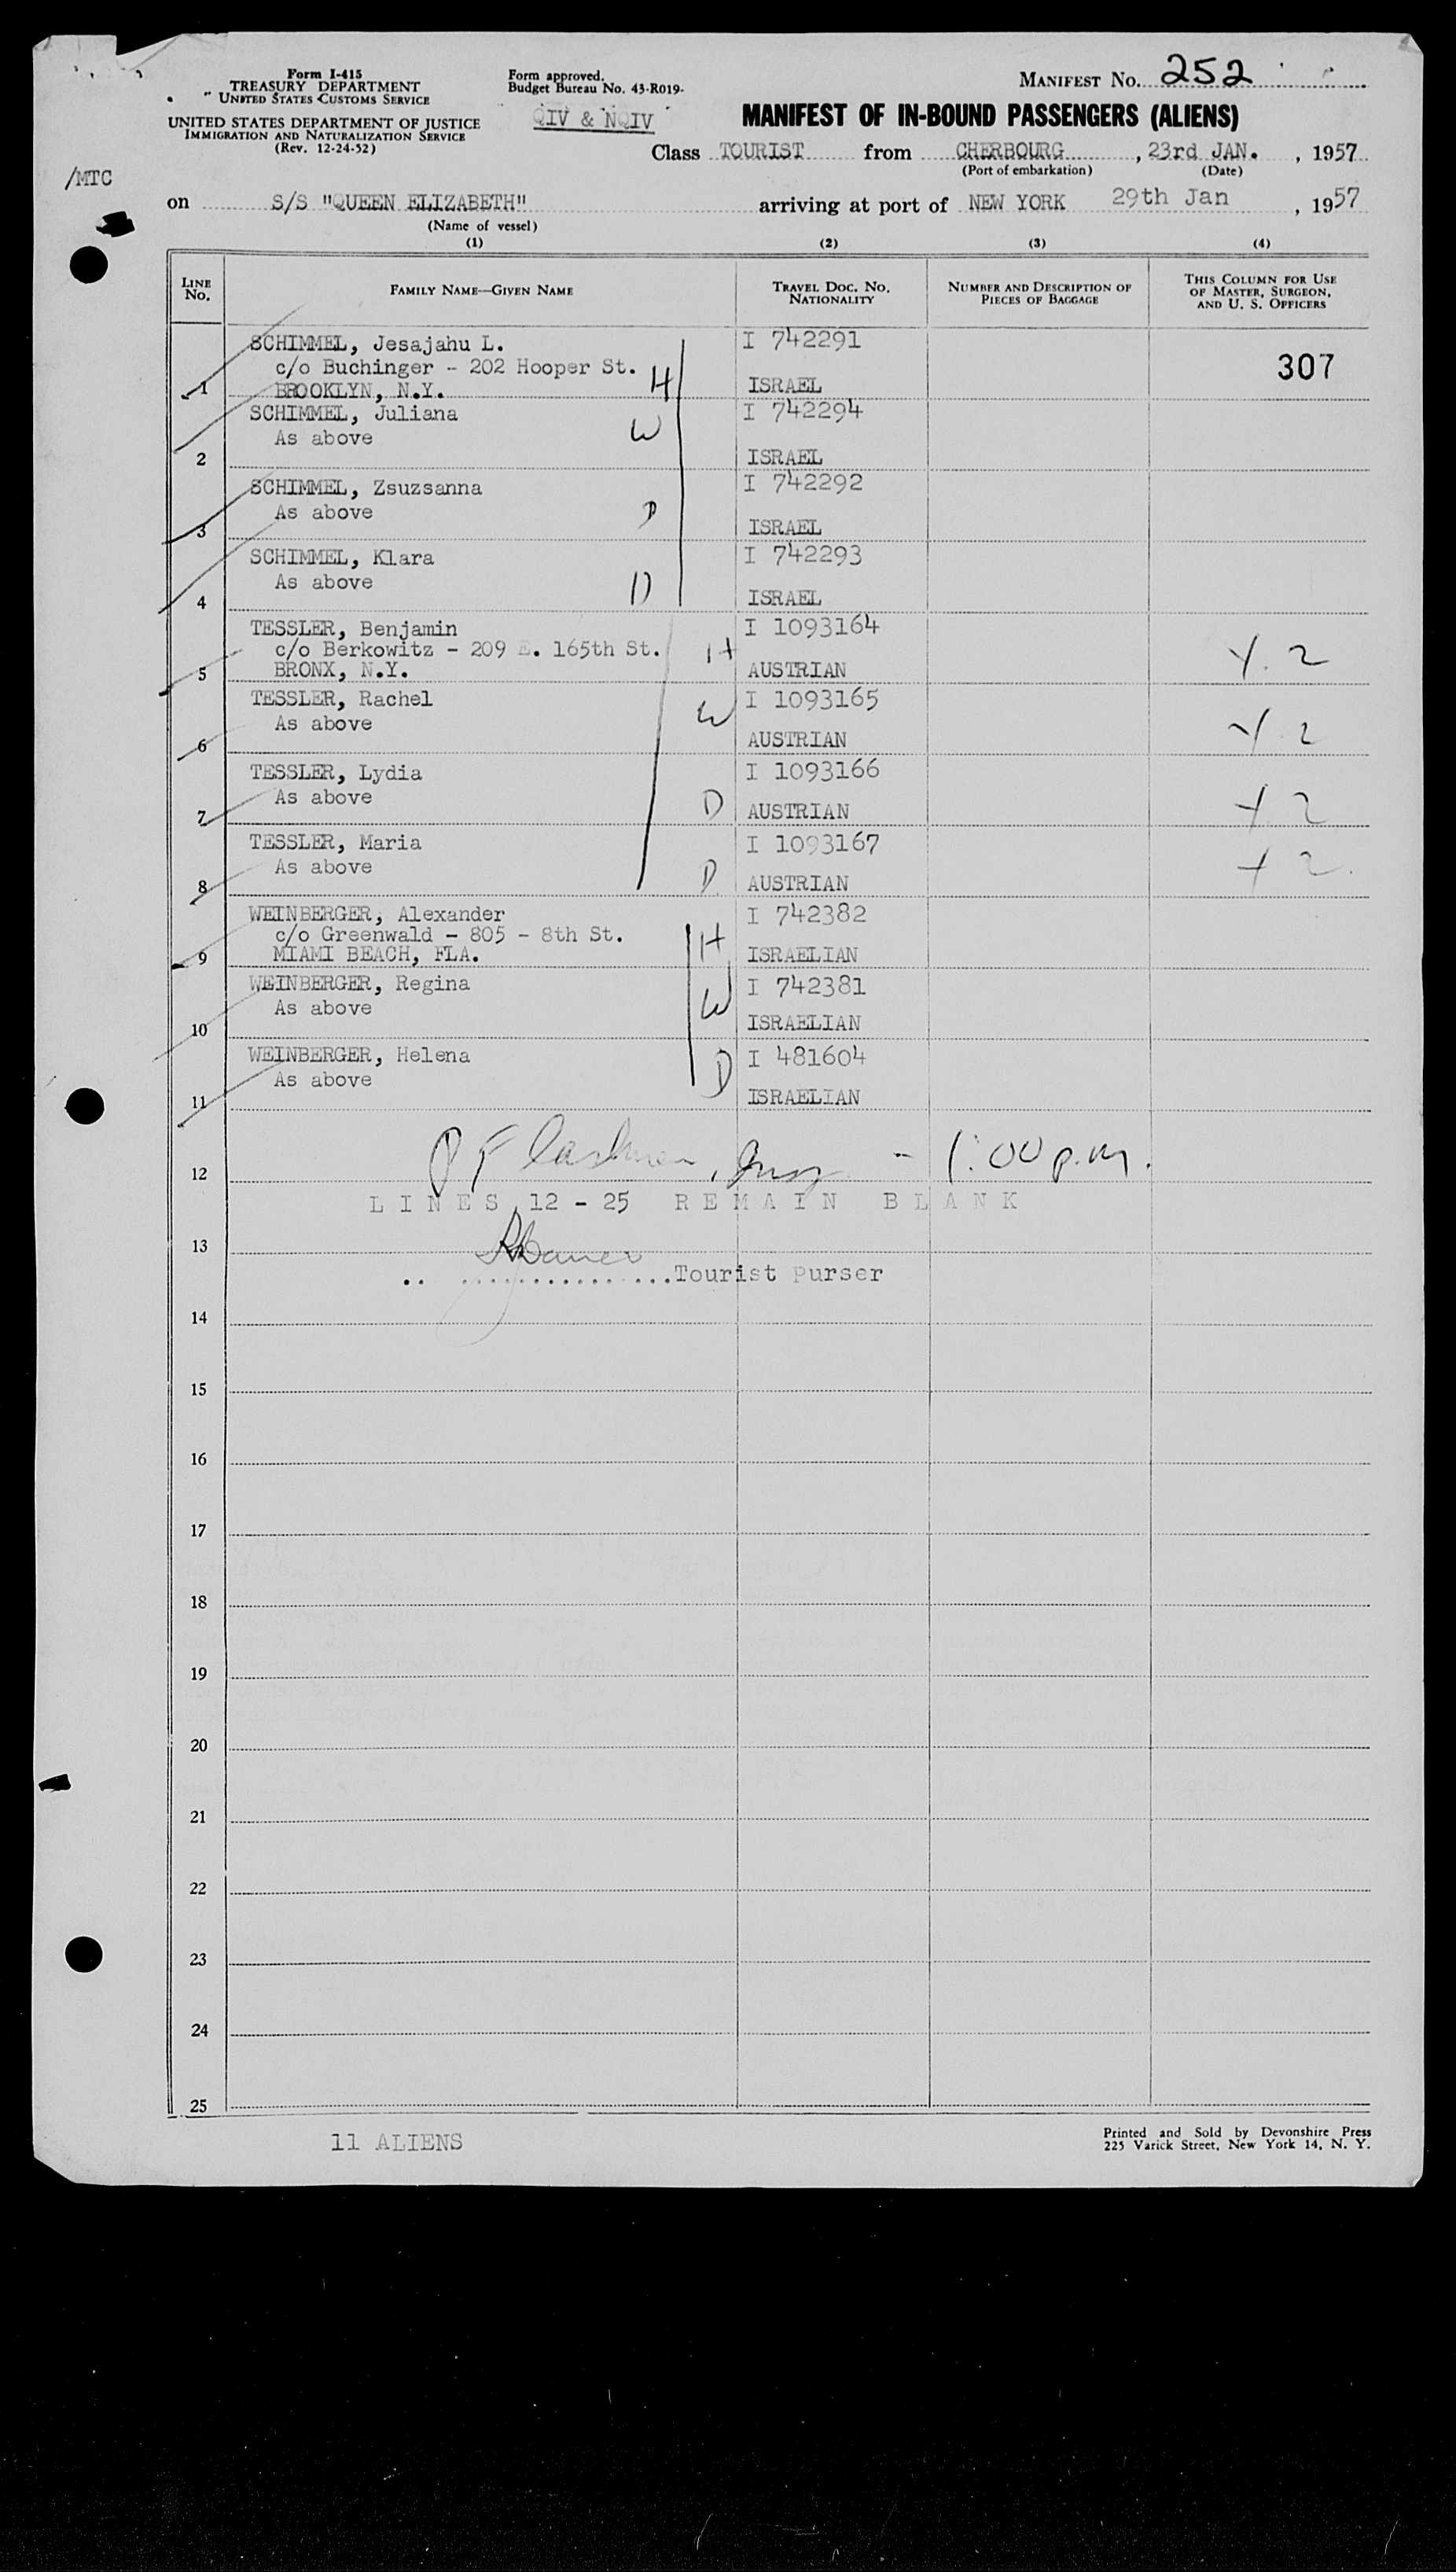 Form I-415
TREASURY DEPARTMENT
UNITED STATES CUSTOMS SERVICE
UNITED STATES DEPARTMENT OF JUSTICE
IMMIGRATION AND NATURALIZATION SERVICE
(Rev. 12-24-52)
Form approved.
Budget Bureau No. 43-R019-
QIV & NQIV
MANIFEST No. 252
MANIFEST OF IN-BOUND PASSENGERS (ALIENS)
Class TOURIST from CHERBOURG, 23rd JAN., 1957
(Port of embarkation) (Date)
/MTC
on S/S "QUEEN ELIZABETH" arriving at port of NEW YORK 29th Jan, 1957
(Name of vessel)
(1) (2) (3) (4)
LINE No.
FAMILY NAME—GIVEN NAME
TRAVEL DOC. NO. NATIONALITY
NUMBER AND DESCRIPTION OF PIECES OF BAGGAGE
THIS COLUMN FOR USE OF MASTER, SURGEON, AND U. S. OFFICERS
SCHIMMEL, Jesajahu L. I 742291
c/o Buchinger - 202 Hooper St. H 307
1 BROOKLYN, N.Y. ISRAEL
SCHIMMEL, Juliana I 742294
As above W
2 ISRAEL
SCHIMMEL, Zsuzsanna I 742292
As above D
3 ISRAEL
SCHIMMEL, Klara I 742293
As above D
4 ISRAEL
TESSLER, Benjamin I 1093164
c/o Berkowitz - 209 E. 165th St. H
5 BRONX, N.Y. AUSTRIAN
TESSLER, Rachel I 1093165
As above W
6 AUSTRIAN
TESSLER, Lydia I 1093166
As above D
7 AUSTRIAN
TESSLER, Maria I 1093167
As above D
8 AUSTRIAN
WEINBERGER, Alexander I 742382
c/o Greenwald - 805 - 8th St. H
9 MIAMI BEACH, FLA. ISRAELIAN
WEINBERGER, Regina I 742381
As above W
10 ISRAELIAN
WEINBERGER, Helena I 481604
As above D
11 ISRAELIAN
12 - 1:00 p.m.
LINES 12 - 25 REMAIN BLANK
13
Tourist Purser
14
15
16
17
18
19
20
21
22
23
24
25
11 ALIENS
Printed and Sold by Devonshire Press
225 Varick Street, New York 14, N. Y.